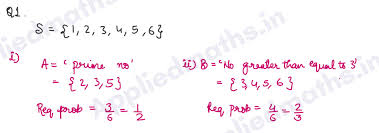 Q1.
S = {1, 2, 3, 4, 5, 6}
i) A = 'prime no'
= {2, 3, 5}
Req prob = 3/6 = 1/2
ii) B = 'No greater than equal to 3'
= {3, 4, 5, 6}
Req prob = 4/6 = 2/3